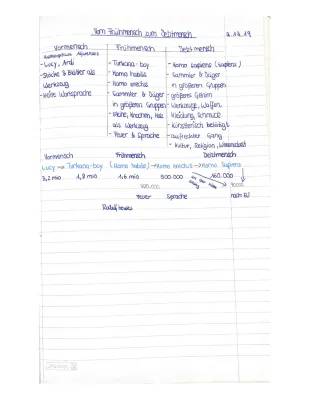 Vom Frühmensch zum Jetztmensch
Vormensch Frühmensch Jetztmensch
- Lucy, Ardi - Turkana-boy - Homo sapiens (sapiens)
- Stöcke & Blätter als - Homo habilis - Sammler & Jäger
Werkzeug - Homo erectus in größeren Gruppen
- Sammler & Jäger - größeres Gehirn
in größeren Gruppen - Werkzeuge, Waffen,
- Steine, Knochen, Holz Kleidung, Schmuck
als Werkzeug - künstlerisch
- Feuer & Sprache - aufrechter Gang
- Kultur, Religion, Wissenschaft
Vormensch Frühmensch Jetztmensch
Lucy → Turkana-boy (Homo habilis) → Homo erectus → Homo sapiens
3,2 mio 1,8 mio 1,6 mio 500.000 160.000
Feuer Sprache nach EU